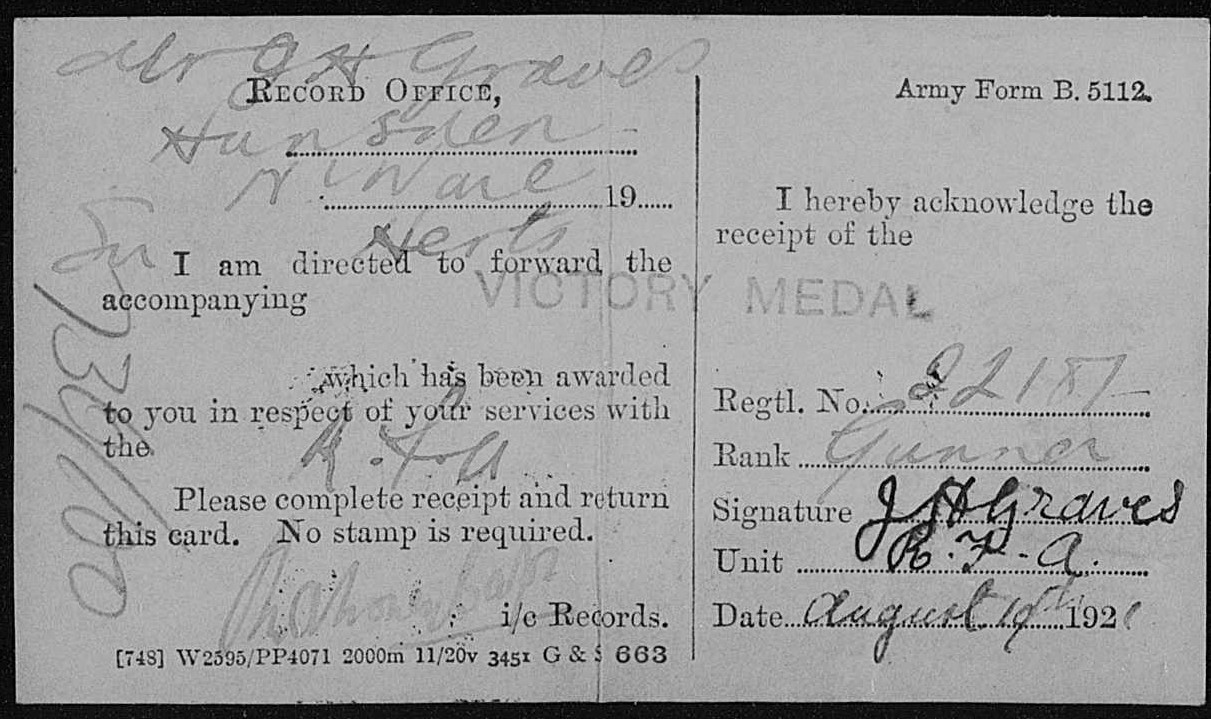 Mr J H Graves
RECORD OFFICE,
Hunsden
Nr Ware 19......
Herts
I am directed to forward the
accompanying
VICTORY MEDAL
which has been awarded
to you in respect of your services with
the R.F.A
Please complete receipt and return
this card. No stamp is required.
i/c Records.
[748] W2595/PP4071 2000m 11/20v 3451 G & S 663
Army Form B. 5112.
I hereby acknowledge the
receipt of the
Regtl. No. 22187
Rank Gunner
Signature J H Graves
Unit R. F. A.
Date August 19th 1921